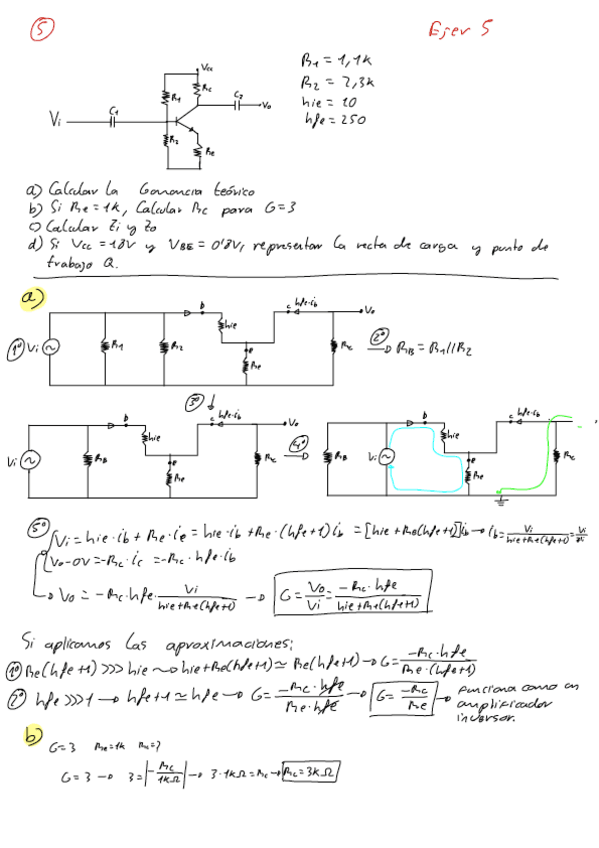 5 Ejer 5
R1 = 1,1k
R2 = 2,3k
hie = 10
hfe = 250
Vcc
R1 Rc C2 Vo
Vi C1
R2 Re
a) Calcular la Ganancia teórico
b) Si Re = 1k, Calcular Rc para G = 3
c) Calcular Zi y Zo
d) Si Vcc = 18V y VBE = 0'8V, representar la recta de carga y punto de
trabajo Q.
a)
1º Vi R1 R2 b hie e Re c hfe·ib Vo Rc 2º RB = R1//R2
3º
Vi RB b hie e Re c hfe·ib Vo Rc 4º RB Vi b hie e Re c hfe·ib Rc
5º Vi = hie·ib + Re·ie = hie·ib + Re·(hfe+1)ib = [hie + Re(hfe+1)]ib → ib = Vi/(hie+Re(hfe+1))
Vo-0V = -Rc·ic = -Rc·hfe·ib
Vo = -Rc·hfe· Vi/(hie+Re(hfe+1)) → G = Vo/Vi = -Rc·hfe/(hie+Re(hfe+1))
Si aplicamos las aproximaciones:
1º Re(hfe+1) >>> hie → hie+Re(hfe+1) ≃ Re(hfe+1) → G = -Rc·hfe/(Re·(hfe+1))
2º hfe >>> 1 → hfe+1 ≃ hfe → G = -Rc·hfe/(Re·hfe) → G = -Rc/Re → Funciona como un
amplificador
inversor.
b)
G = 3 Re = 1k Rc = ?
G = 3 → 3 = |-Rc/1kΩ| → 3·1kΩ = Rc → Rc = 3kΩ